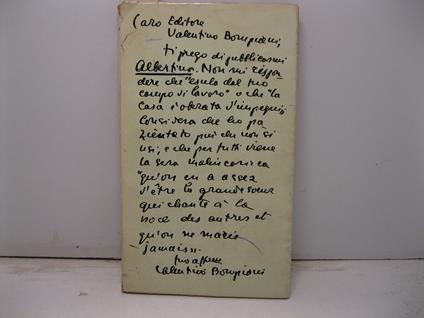 Caro Editore
Valentino Bompiani,
ti prego di pubblicarmi
Albertina. Non mi rispon
dere che "esula dal tuo
campo di lavoro" o che "la
Casa è oberata d'impegni",
Considera che ho pa
zientato più che non si
usi, e che per tutti viene
la sera malinconica
"qu'on en a assez
d'être la grande soeur
qui chante à la
noce des autres et
qu'on ne marie
jamais".
tuo aff.mo
Valentino Bompiani